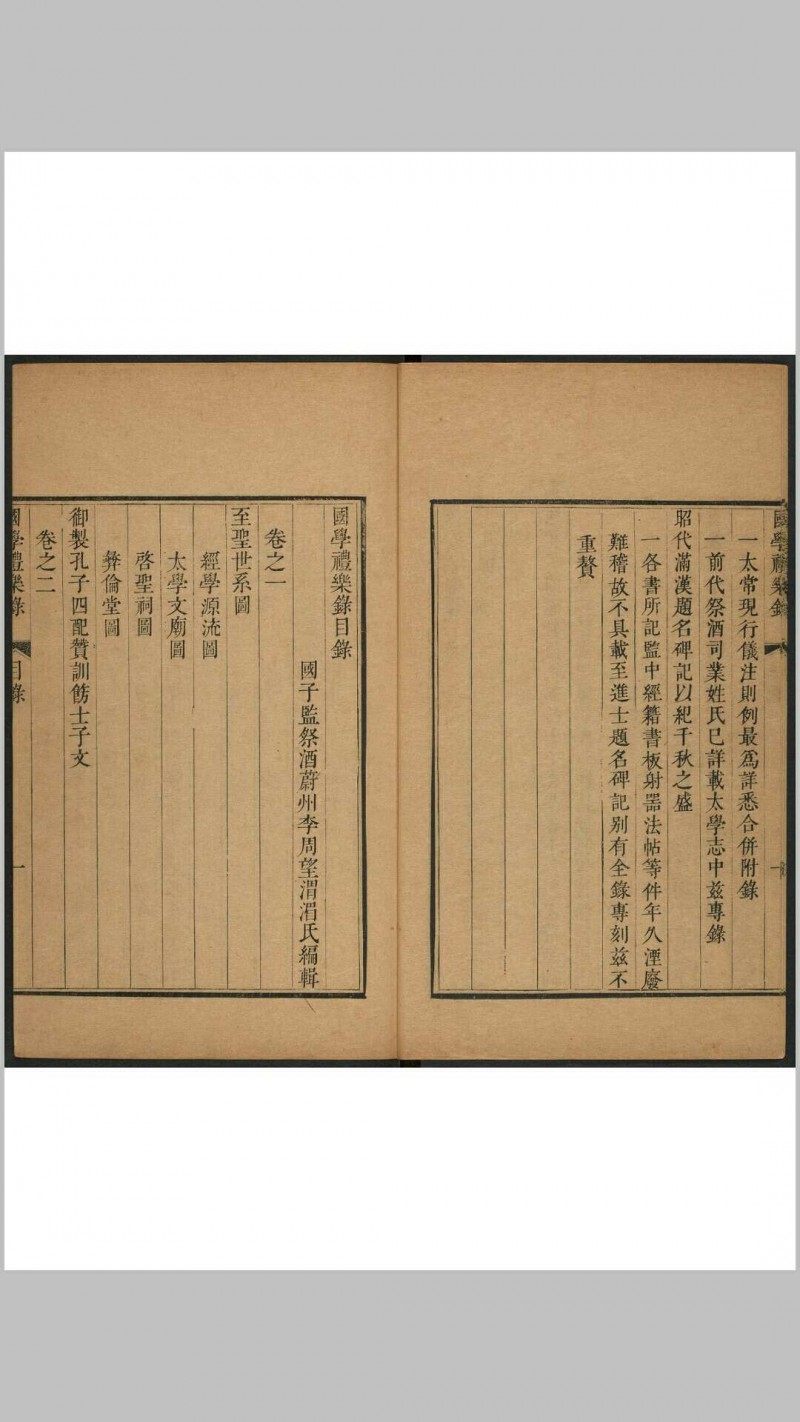 國學禮樂錄
一太常現行儀注則例最爲詳悉合併附錄
一前代祭酒司業姓氏已詳載太學志中兹專錄
昭代滿漢題名碑記以紀千秋之盛
一各書所記監中經籍書板射器法帖等件年久湮廢
難稽故不具載至進士題名碑記别有全錄專刻兹不
重贅
國學禮樂錄目錄
國子監祭酒蔚州李周望渭湄氏編輯
卷之一
至聖世系圖
經學源流圖
太學文廟圖
啓聖祠圖
彝倫堂圖
御製孔子四配贊訓飭士子文
卷之二
國學禮樂錄 目錄 一